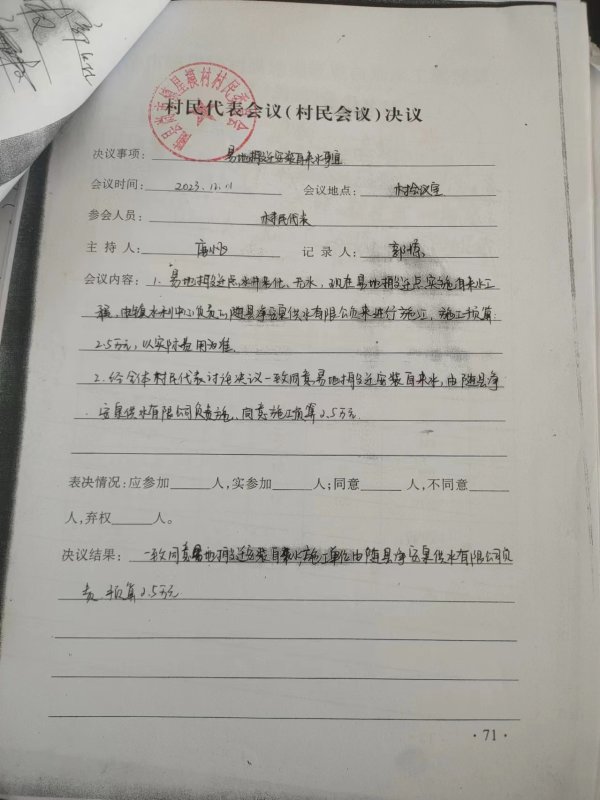 村民代表会议(村民会议)决议
决议事项: 易地搬迁安装自来水事宜
会议时间: 2023.12.11 会议地点: 村会议室
参会人员: 村民代表
主持人: 记录人: 郭
会议内容: 1. 易地搬迁点水井老化、无水, 现在易地搬迁点实施自来水工
程, 由镇水利中心负责, 随县净安泉供水有限公司来进行施工, 施工预算
2.5万元, 以实际费用为准.
2. 经全体村民代表讨论决议一致同意易地搬迁安装自来水, 由随县净
安泉供水有限公司负责施工, 同意施工预算2.5万元.
表决情况:应参加 人,实参加 人;同意 人,不同意
人,弃权 人。
决议结果: 一致同意易地搬迁安装自来水, 施工单位由随县净安泉供水有限公司负
责. 预算2.5万元
·71·